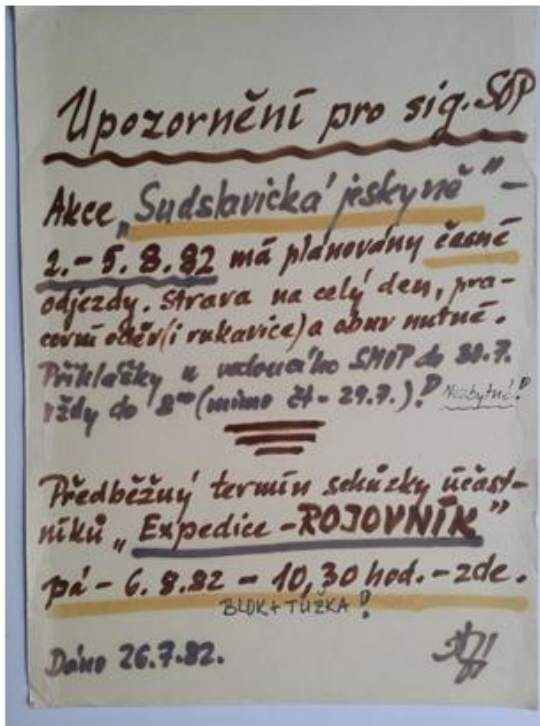 Upozornění pro sig. SOP
Akce „Sudslavická jeskyně" –
2. – 5. 8. 82 má plánovány časné
odjezdy. Strava na celý den, pra-
covní oděv (i rukavice) a obuv nutné.
Přihlášky u vedoucího SMOP do 30.7.
vždy do 8⁰⁰ (mimo čt – 29.7.)! Nezbytné!
Předběžný termín schůzky účast-
níků „Expedice – ROJOVNÍK"
pá – 6. 8. 82 – 10,30 hod. – zde.
BLOK + TUŽKA!
Dáno 26.7.82.